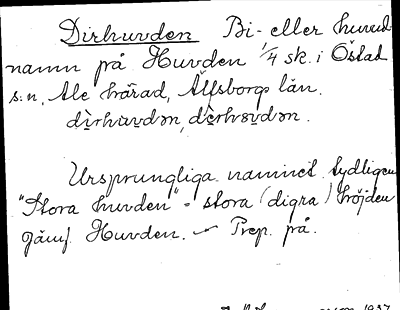 Dirhuvden Bi- eller huvud
namn på Huvden 1/4 sk. i Östad
s:n, Ale härad, Älfsborgs län.
dìrhuvdən, dèrhuvdən.
Ursprungliga namnet tydligen
"Stora huvden" = stora (digra) höjden
Jämf. Huvden. — Prep. på.
1937